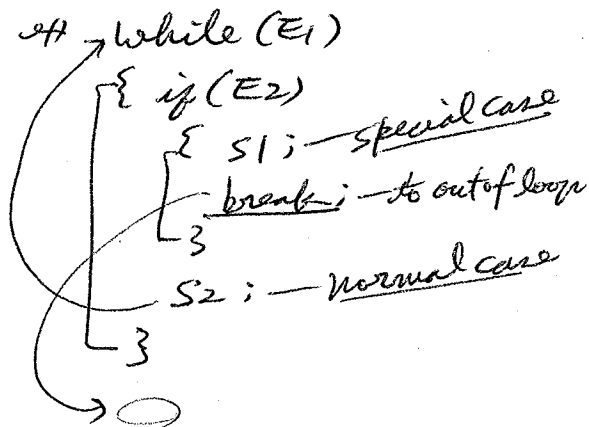 while (E1)
{ if (E2)
{ S1 ; — special case
break ; — to out of loop
}
S2 ; — normal case
}